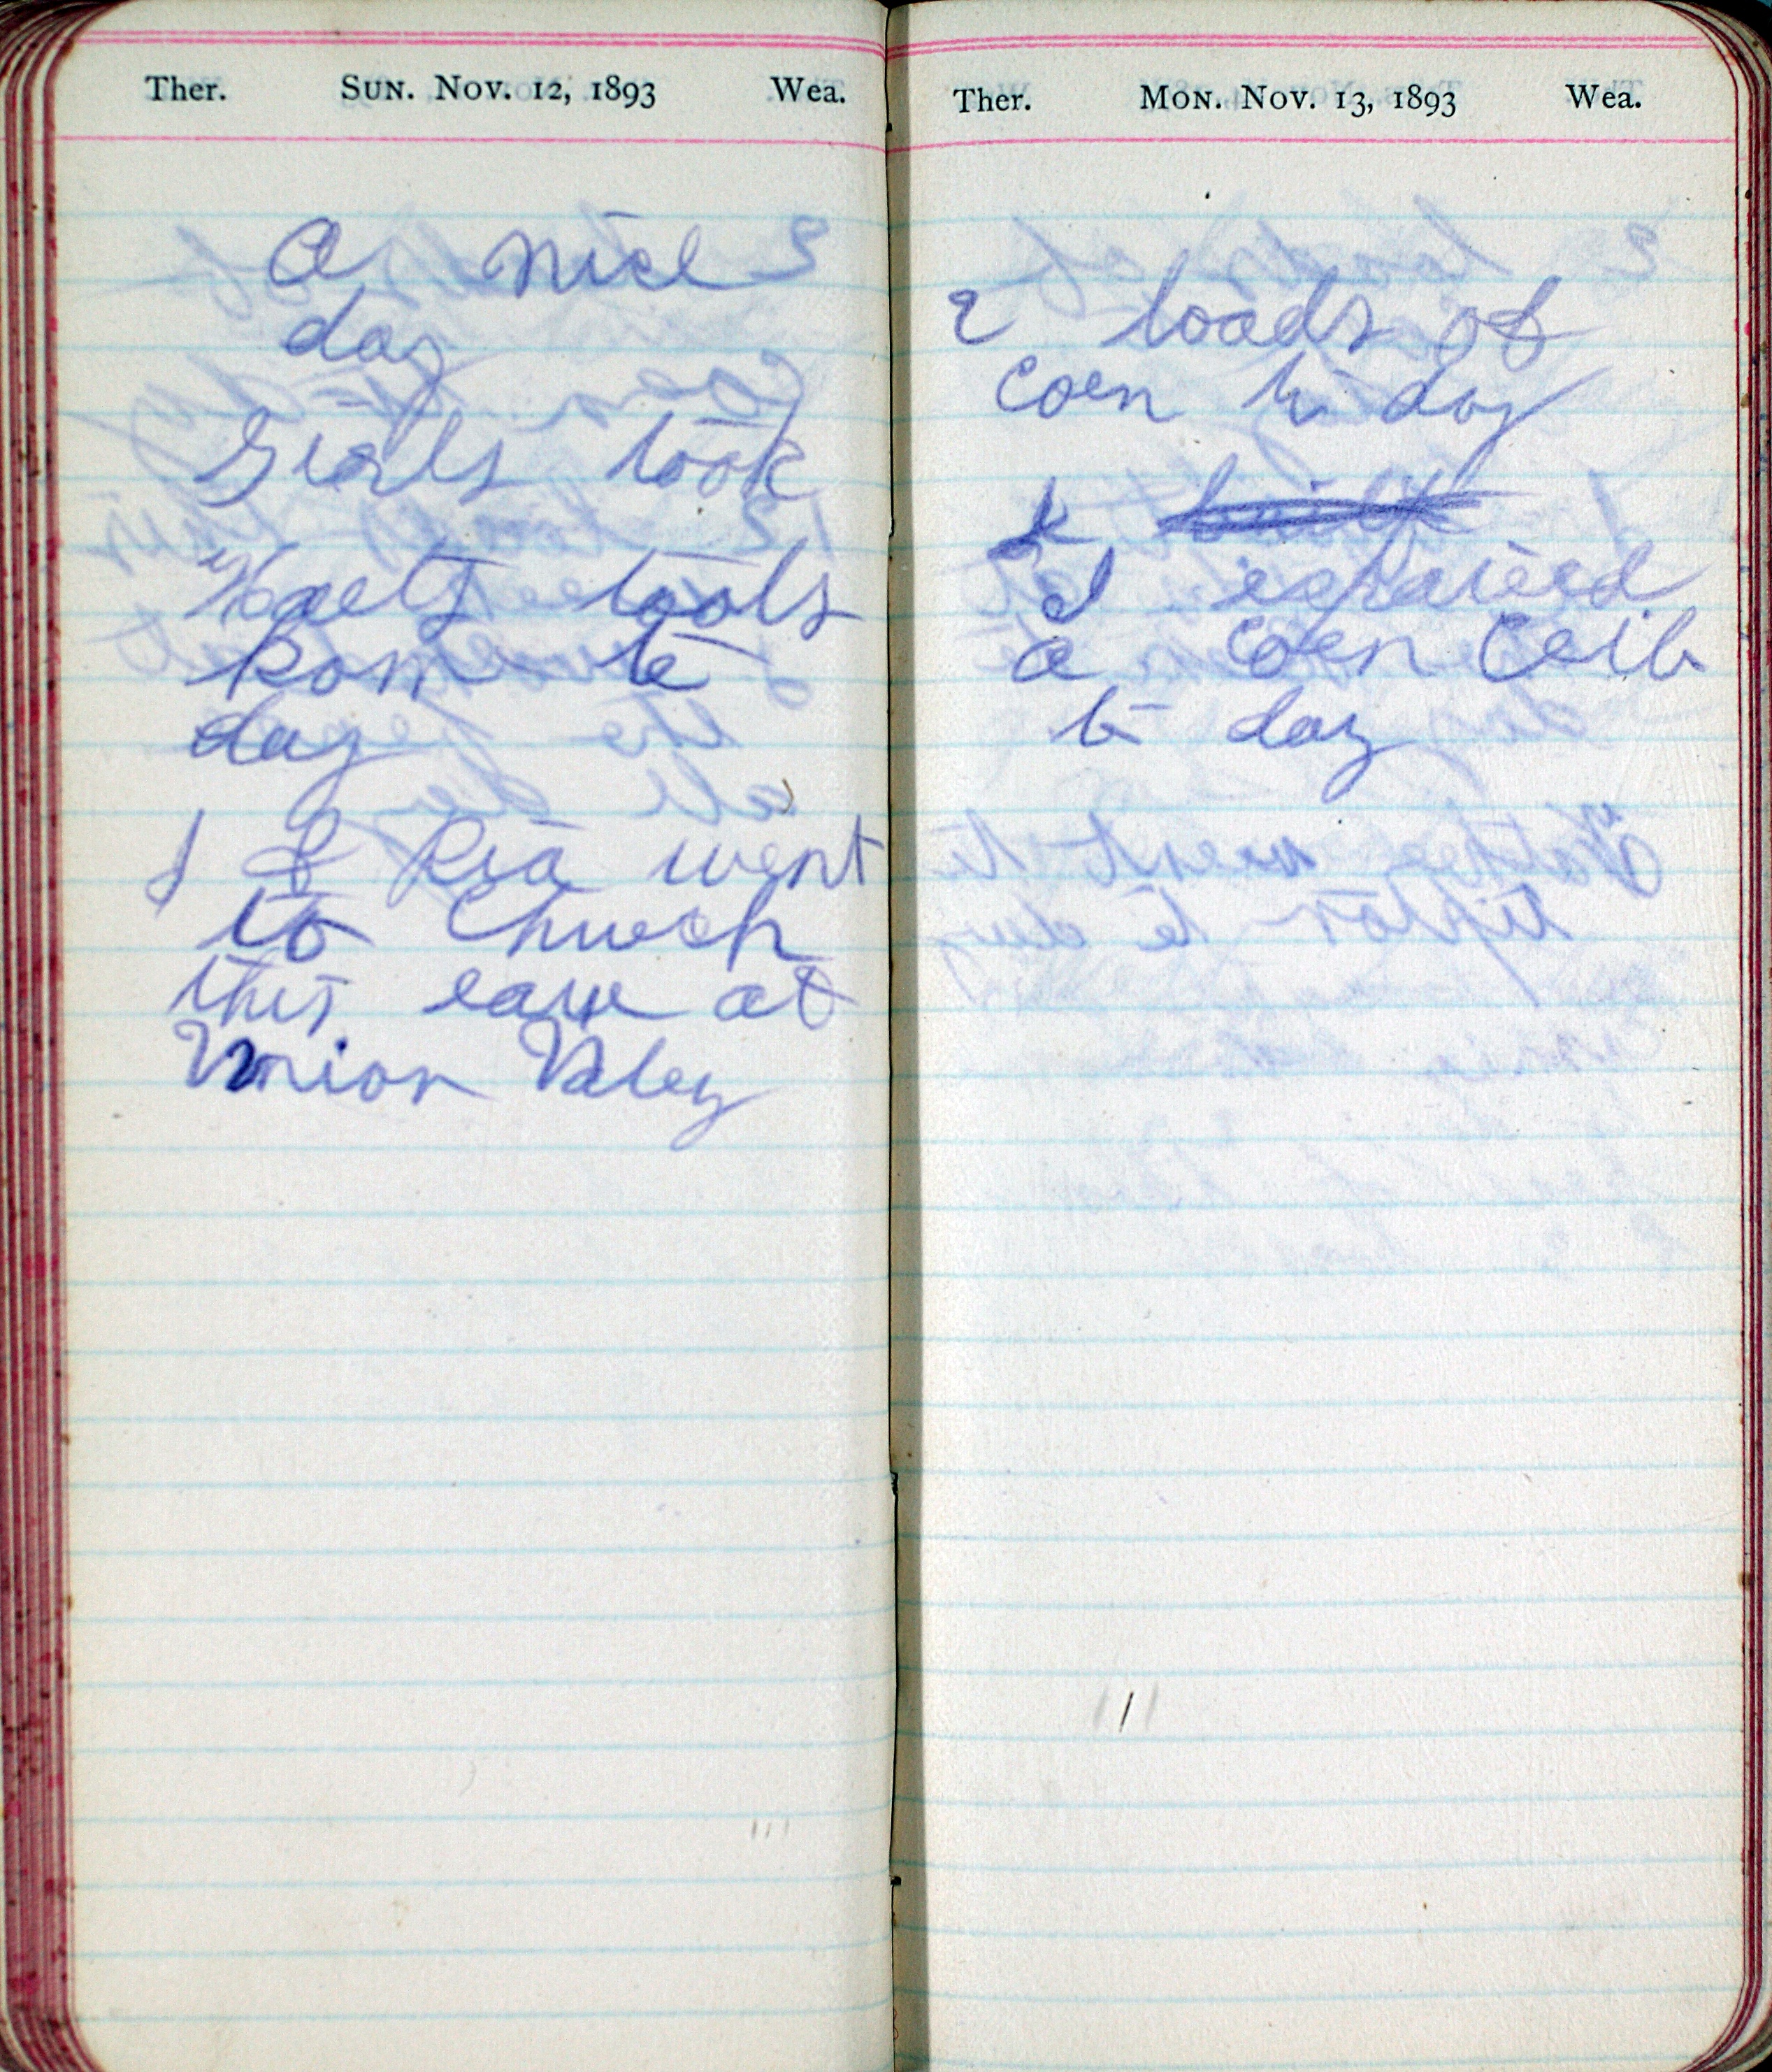 Ther. Sun. Nov. 12, 1893 Wea.
A nice
day
Girls took
Harts tools
hom to
day
I & Ria went
to Church
this eave at
Union Valey
Ther. Mon. Nov. 13, 1893 Wea.
2 loads of
corn to day
I built
I repaired
a corn Crib
to day